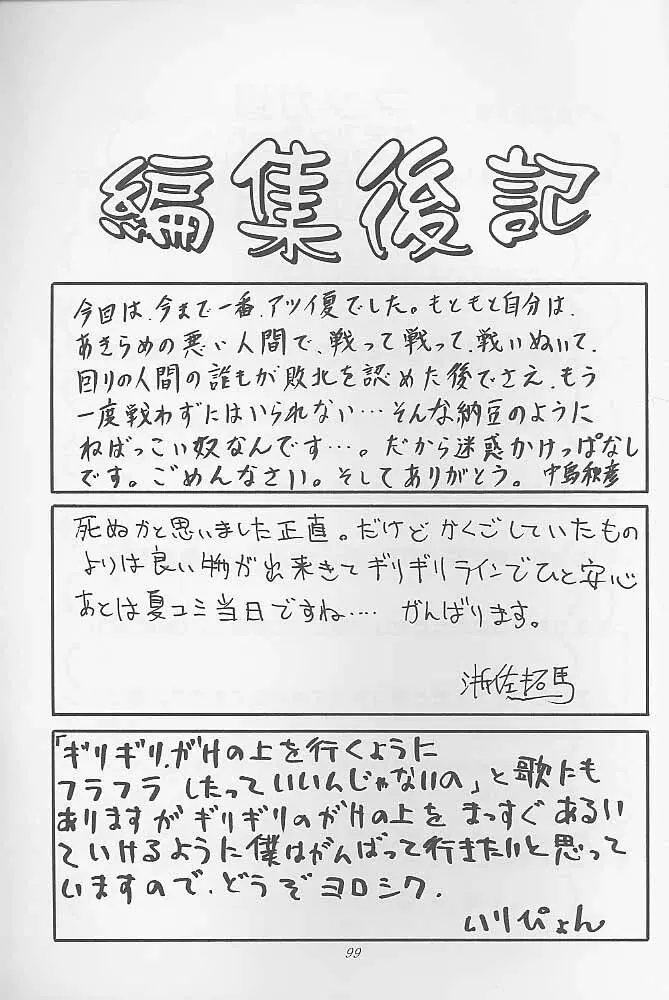 編集後記
今回は、今まで一番、アツイ夏でした。もともと自分は、
あきらめの悪い人間で、戦って戦って、戦いぬいて、
回りの人間の誰もが敗北を認めた後でさえ、もう
一度戦わずにはいられない…そんな納豆のように
ねばっこい奴なんです…。だから迷惑かけっぱなし
です。ごめんなさい。そしてありがとう。 中島秋彦
死ぬかと思いました正直。だけど かくごしていたもの
よりは良い物が出来きてギリギリラインでひと安心
あとは夏コミ当日ですね…. がんばります。
「ギリギリ、がけの上を行くように
フラフラ したっていいんじゃないの」と歌にも
ありますが ギリギリのがけの上を まっすぐ あるい
ていけるように 僕はがんばって行きたいと思って
いますので、どうぞ ヨロシク.
いりぴょん
99